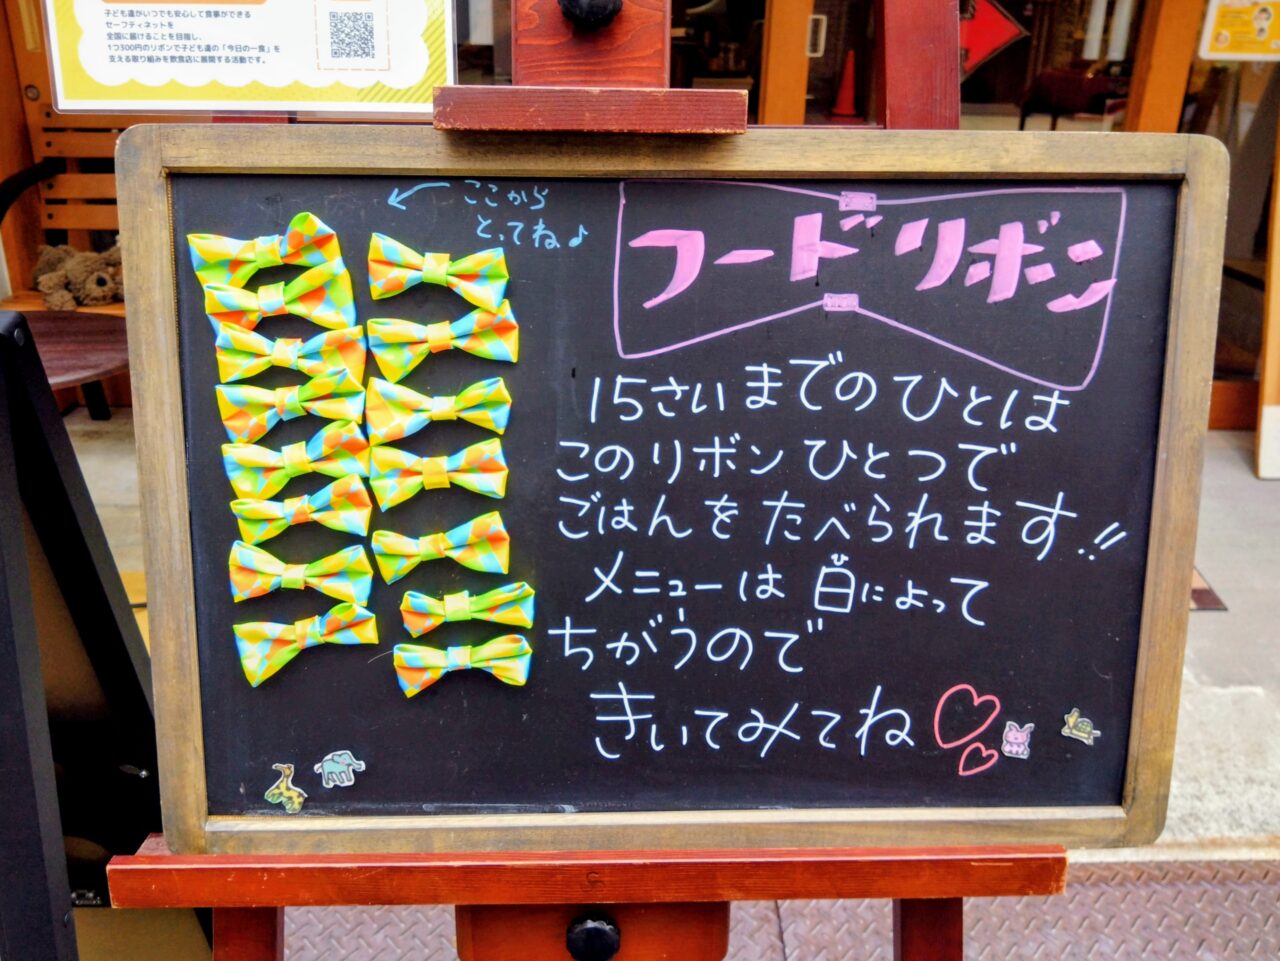 子ども達がいつでも安心して食事ができる
セーフティネットを
全国に届けることを目指し、
1つ300円のリボンで子ども達の「今日の一食」を
支える取り組みを飲食店に展開する活動です。
ここから
とってね♪
フードリボン
15さいまでのひとは
このリボンひとつで
ごはんをたべられます!!
メニューは日によって
ひ
ちがうので
きいてみてね